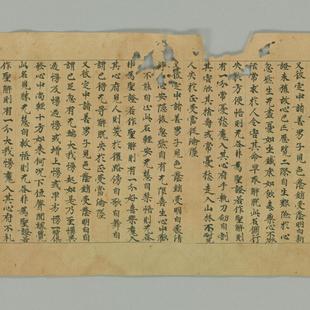 又彼定中諸善男子見色陰銷受陰明白新
證未獲故心已亡歷覽二際自生艱險於心
忽然生无盡憂如坐鐵床如飲毒藥心不欲
活常求於人令害其命早取解脫此名修行
失於方便悟則无咎非為聖證若作聖解則
有一分常憂愁魔入其心府手執刀劍自割
其肉欣其捨壽或常憂愁走入山林不耐見
人失於正受當從淪墜
又彼定中諸善男子見色陰銷受陰明白處清
淨中心安隱後忽然自有无限喜生心中歡
不能自止此名輕安无慧自禁悟則无咎非
為聖證若作聖解則有一分好喜樂魔入
其心府見人則笑於衢路傍自歌自舞自
謂已得无礙解脫失於正受當從淪墜
又彼定中諸善男子見色陰銷受陰明白自
謂已足忽有无端大我慢起如是乃至慢與
過慢及慢過慢或增上慢或卑劣慢一時俱
發心中尚輕十方如來何況下位聲聞緣覺
此名見勝无慧自救悟則无咎非為聖證若
作聖解則有一分大我慢魔入其心府不礼